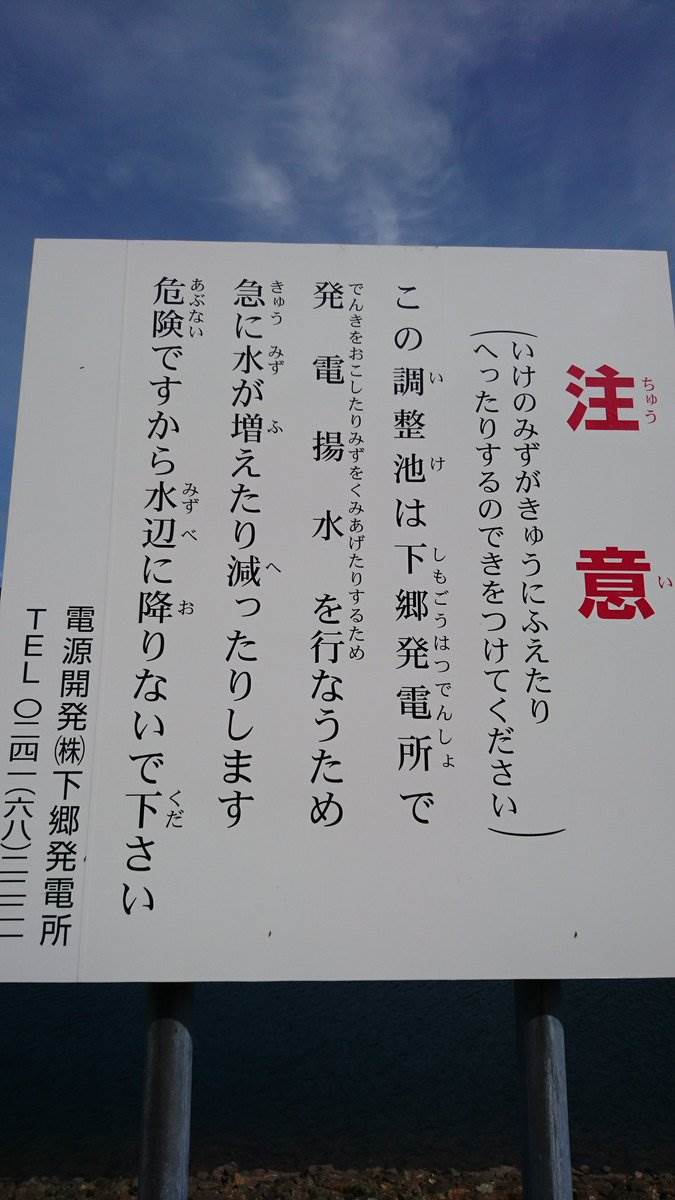 ちゅう い
注意
(いけのみずがきゅうにふえたり
へったりするのできをつけてください)
い け しもごうはつでんしょ
この調整池は下郷発電所で
でんきをおこしたりみずをくみあげたりするため
発電揚水を行なうため
きゅう みず ふ へ
急に水が増えたり減ったりします
あぶない みず べ お くだ
危険ですから水辺に降りないで下さい
電源開発㈱下郷発電所
TEL 〇二四一(六八)